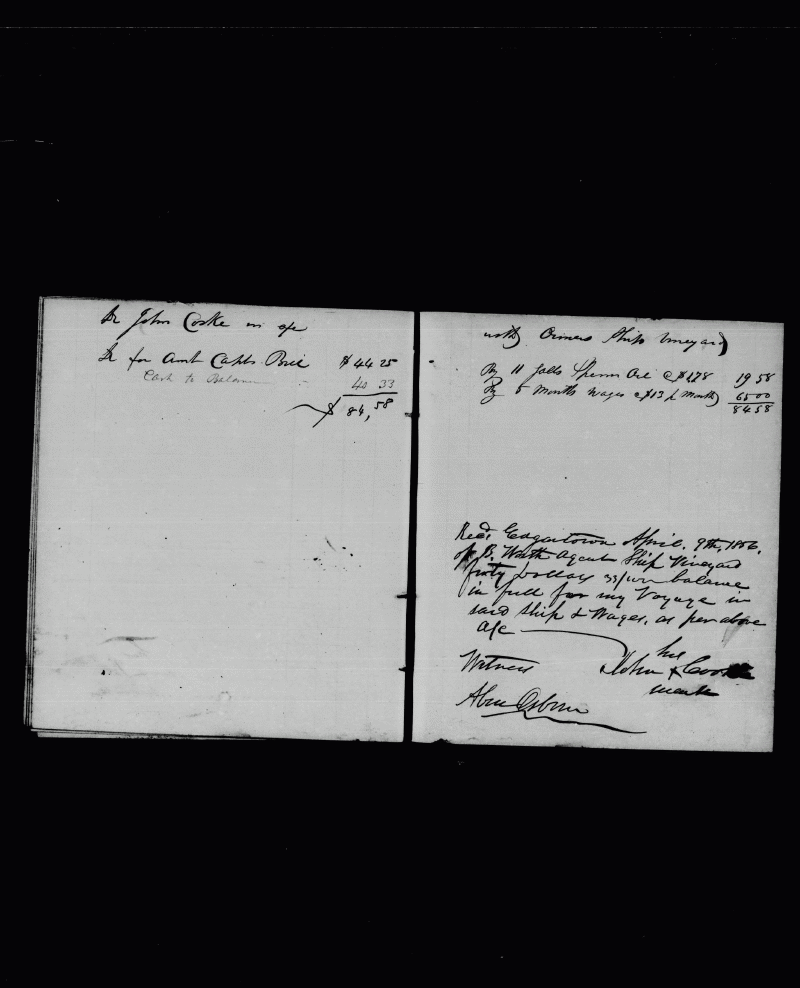 Dr John Cooke in a/c
Dr for Amt Capts Bill $44 25
Cash to Balance 40 33
$ 84,58
with Owners Ship Vineyard
By 11 galls Sperm Oil @ $1.78 19 58
By 5 Months Wages @ $13 p Month 65 00
84 58
Recd, Edgartown April. 9th, 1856,
of B. Worth Agent Ship Vineyard
forty Dollars 33/100 balance
in full for my Voyage in
said Ship & Wages, as per above
a/c
his
Witness John X Cooke
mark
Abm Osborn